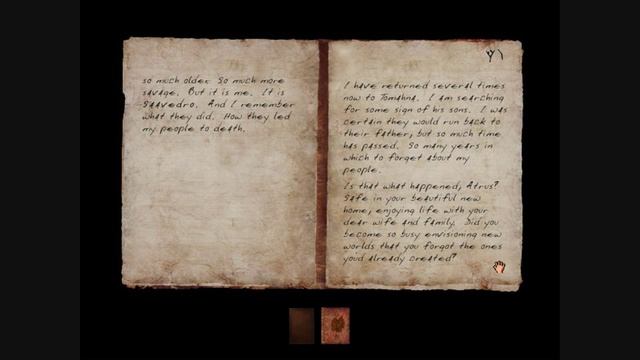 so much older. So much more
savage. But it is me. It is
Saavedro. And I remember
what they did. How they led
my people to death.
I have returned several times
now to Tomahna. I am searching
for some sign of his sons. I was
certain they would run back to
their father, but so much time
has passed. So many years in
which to forget about my
people.
Is that what happened, Atrus?
Safe in your beautiful new
home, enjoying life with your
dear wife and family. Did you
become so busy envisioning new
worlds that you forgot the ones
you'd already created?